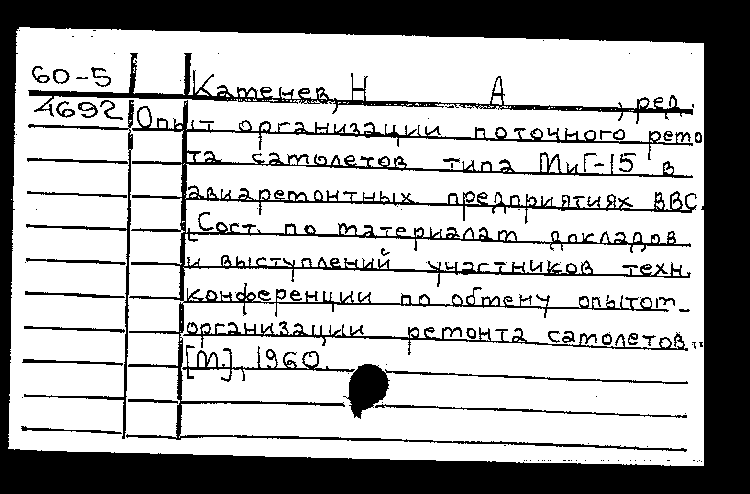 60-5 Катенев, Н А , ред.
4692 Опыт организации поточного ремо
та самолетов типа МиГ-15 в
авиаремонтных предприятиях ВВС.
[Сост. по материалам докладов
и выступлений участников техн.
конференции по обмену опытом
организации ремонта самолетов."
[М.], 1960.